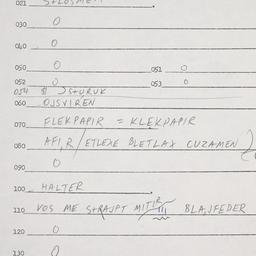 021
030 0
040 0
050 0 051 0
052 0 053 0
054
060 OJSVIREN
070 FLEKPAPIR = KLEKPAPIR
080 AFIR/ETLEKE BLETLAX CUZAMEN
090 0
100 HALTER
110 VOS ME MITIR BLAJFEDER
120 0
130 0